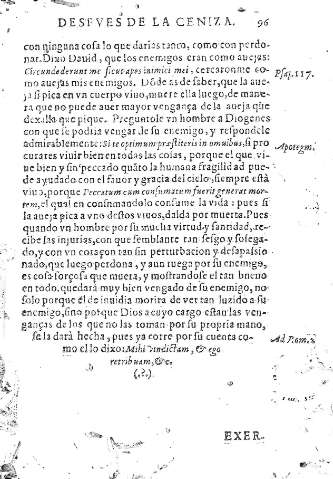 DESPVES DE LA CENIZA. 96
con ninguna cosa lo que darias tanto, como con perdo-
nar. Dixo Dauid, que los enemigos eran como auejas:
Circundederunt me sicut apes inimici mei, cercaronme co- Psal. 117.
mo auejas mis enemigos. Dõde as de saber, que la aue-
ja si pica en vn cuerpo viuo, muere ella luego, de mane-
ra que no puede auer mayor vengança de la aueja que
dexalla que pique. Preguntole vn hombre a Diogenes
con que se podria vengar de su enemigo, y respondele
admirablemente: Si te optimum præstiteris in omnibus, si pro Apotegm.
curares viuir bien en todas las cosas, porque el que vi-
ue bien y sin peccado quãto la humana fragilidad pue-
de ayudado con el fauor y gracia del cielo, siempre está
viuo, porque Peccatum cum consummatum fuerit generat mor-
tem, el qual en consumandolo consume la vida: pues si
la aueja pica a vno destos viuos, dalda por muerta. Pues
quando vn hombre por su mucha virtud y santidad, re-
cibe las injurias, con que semblante tan sesgo y sosega-
do, y con vn coraçon tan sin perturbacion y desapassio-
nado, que luego perdona, y aun ruega por su enemigo,
es cosa forçosa que muera, y mostrandose el tan bueno
en todo, quedará muy bien vengado de su enemigo, no
solo porque él de inuidia morira de ver tan luzido a su
enemigo, sino porque Dios a cuyo cargo estan las ven-
ganças de los que no las toman por su propria mano,
se la dará hecha, pues ya corre por su cuenta co- Ad Rom.
mo el lo dixo: Mihi vindictam, & ego
retribuam, &c.
(.?.)
EXER-